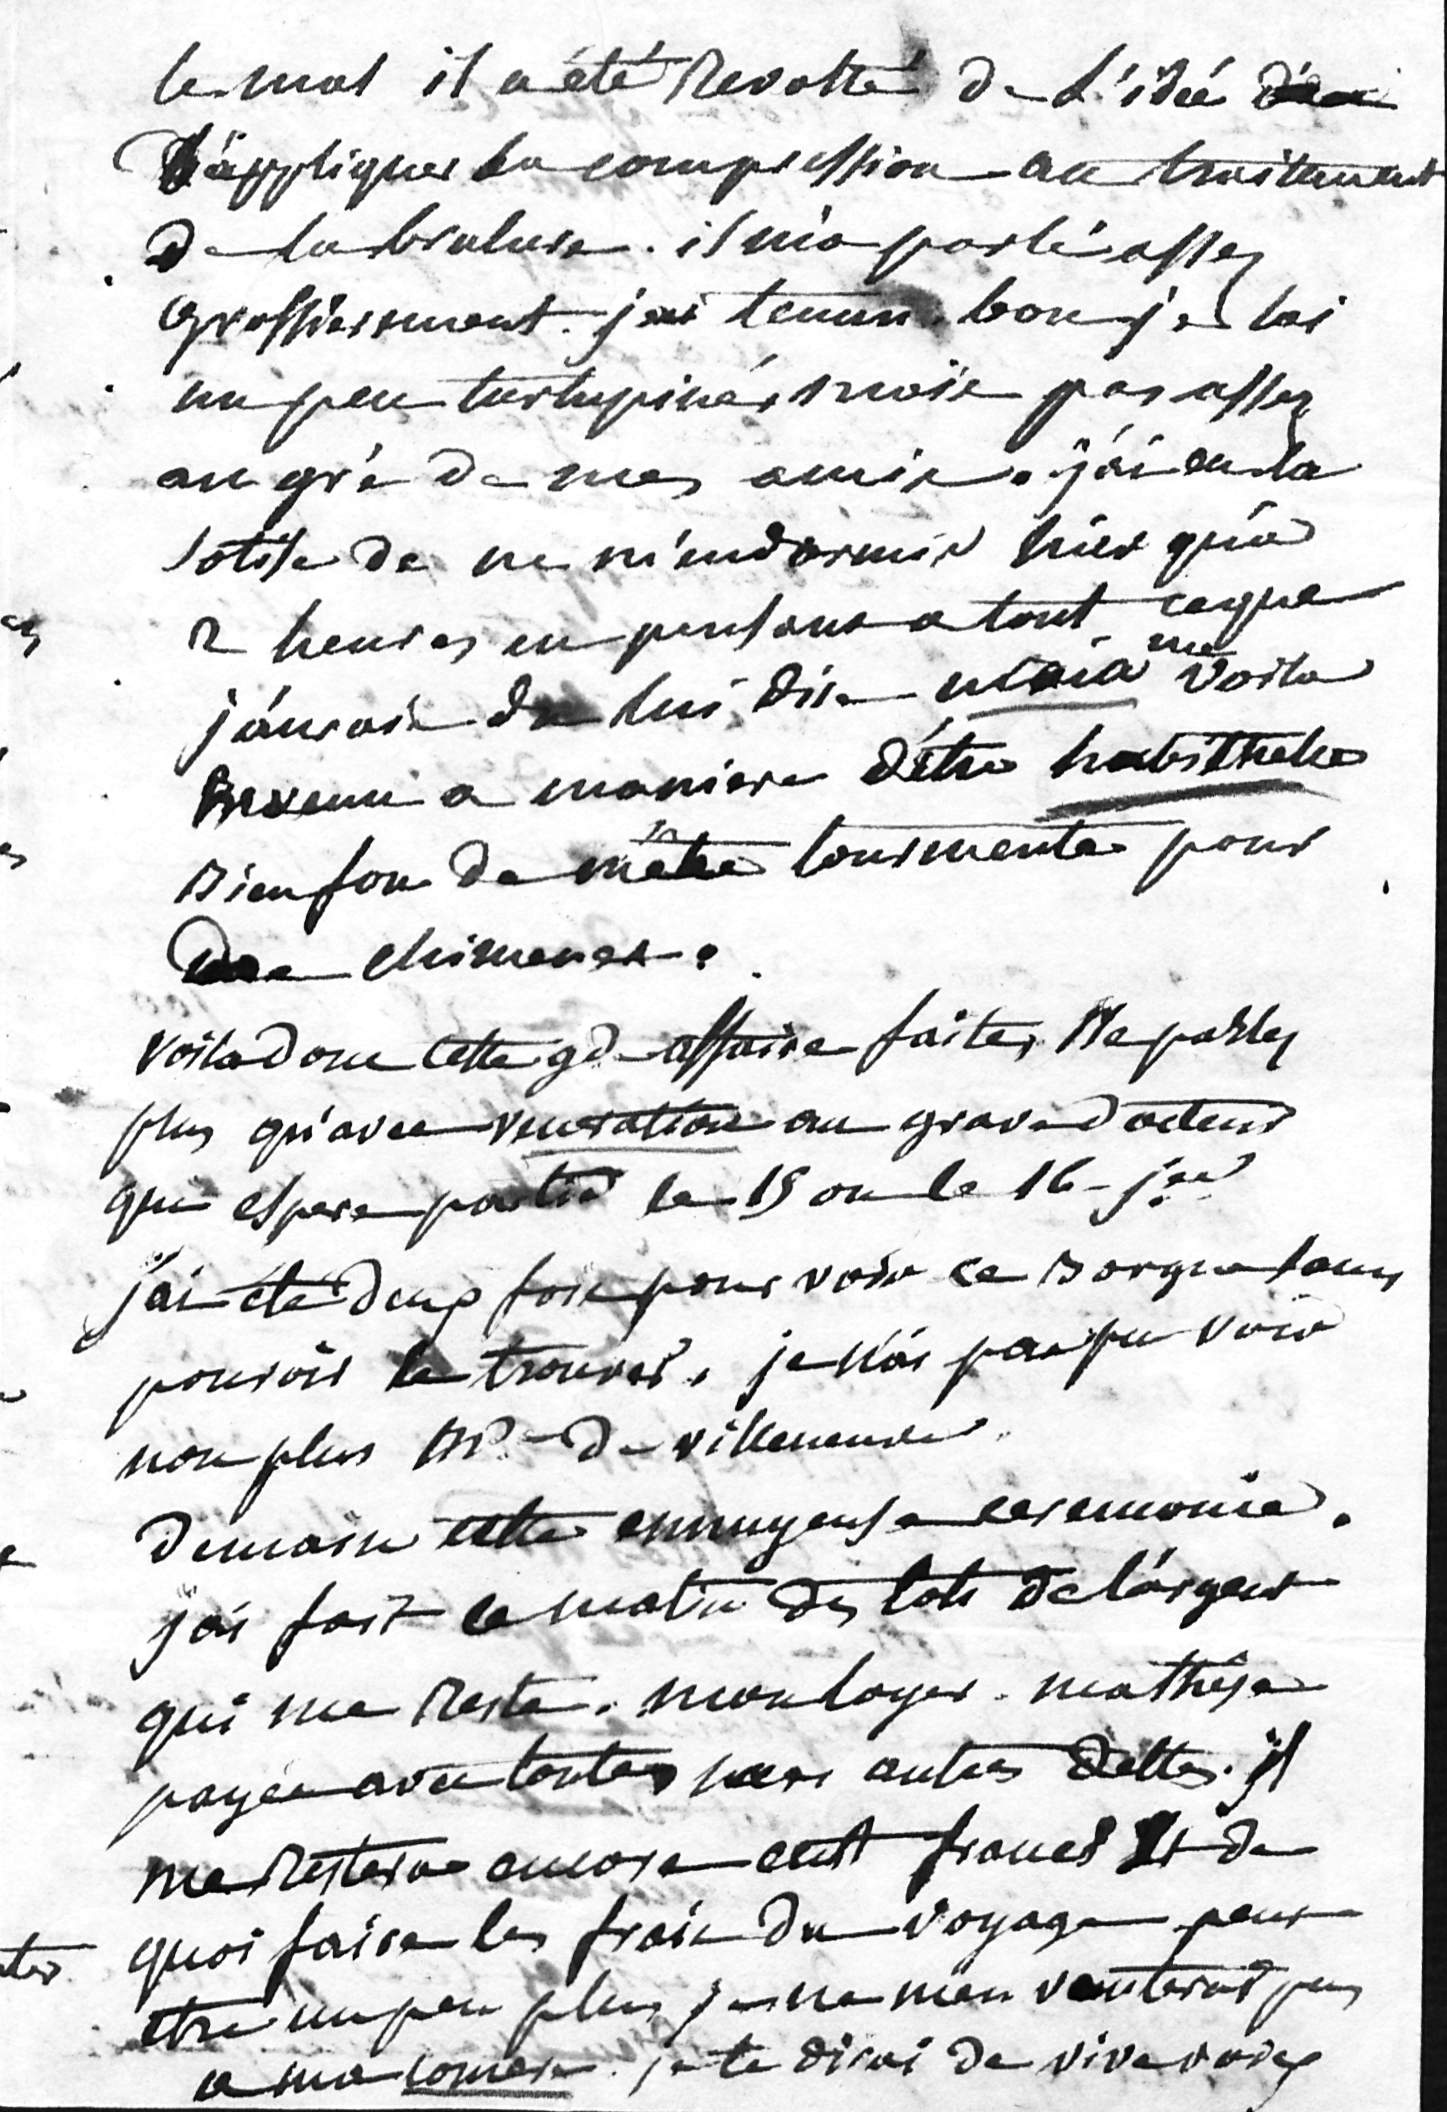 le mal il a été revolté de L'idée
d'appliquer la compression au traitement
de la brulure. il m'a parlé assez
grossierement. j'ai tenu bon je l'ai
un peu turlupiné, mais pas assez
au gré de mes amis. j'ai eu la
sotise de ne m'endormir hier qu'a
2 heures en pensant a tout ceque
j'aurais du lui dire me voila
revenu a maniere d'être habituelle
bien fou de m'être tourmenté pour
des chimeres.
voila donc cette gde affaire faite, Ne parlez
plus qu'avec veneration au grave docteur
qui espere partir le 15 ou le 16
j'ai été deux fois pour voir ce borgne sans
pouvoir le trouver. je n'ai pas pu voir
non plus Mr de villeneuve.
demain cette ennuyeuse ceremonie.
j'ai fait ce matin des lots de l'argent
qui me reste. mon loyer. ma thèse
payée avec toutes mes autres dettes. il
me restera encore cent francs de
quoi faire les frais du voyage peut
etre un peu plus, je ne m'en venterai pas
a ma comere. je te dirai de vive voix